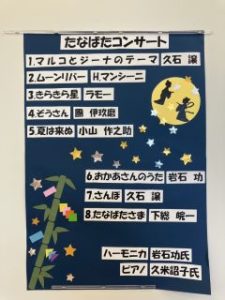 たなばたコンサート
1.マルコとジーナのテーマ 久石 譲
2.ムーンリバー H.マンシーニ
3.きらきら星 ラモー
4.ぞうさん 團 伊玖磨
5.夏は来ぬ 小山 作之助
6.おかあさんのうた 岩石 功
7.さんぽ 久石 譲
8.たなばたさま 下総 皖一
ハーモニカ 岩石功氏
ピアノ 久米詔子氏